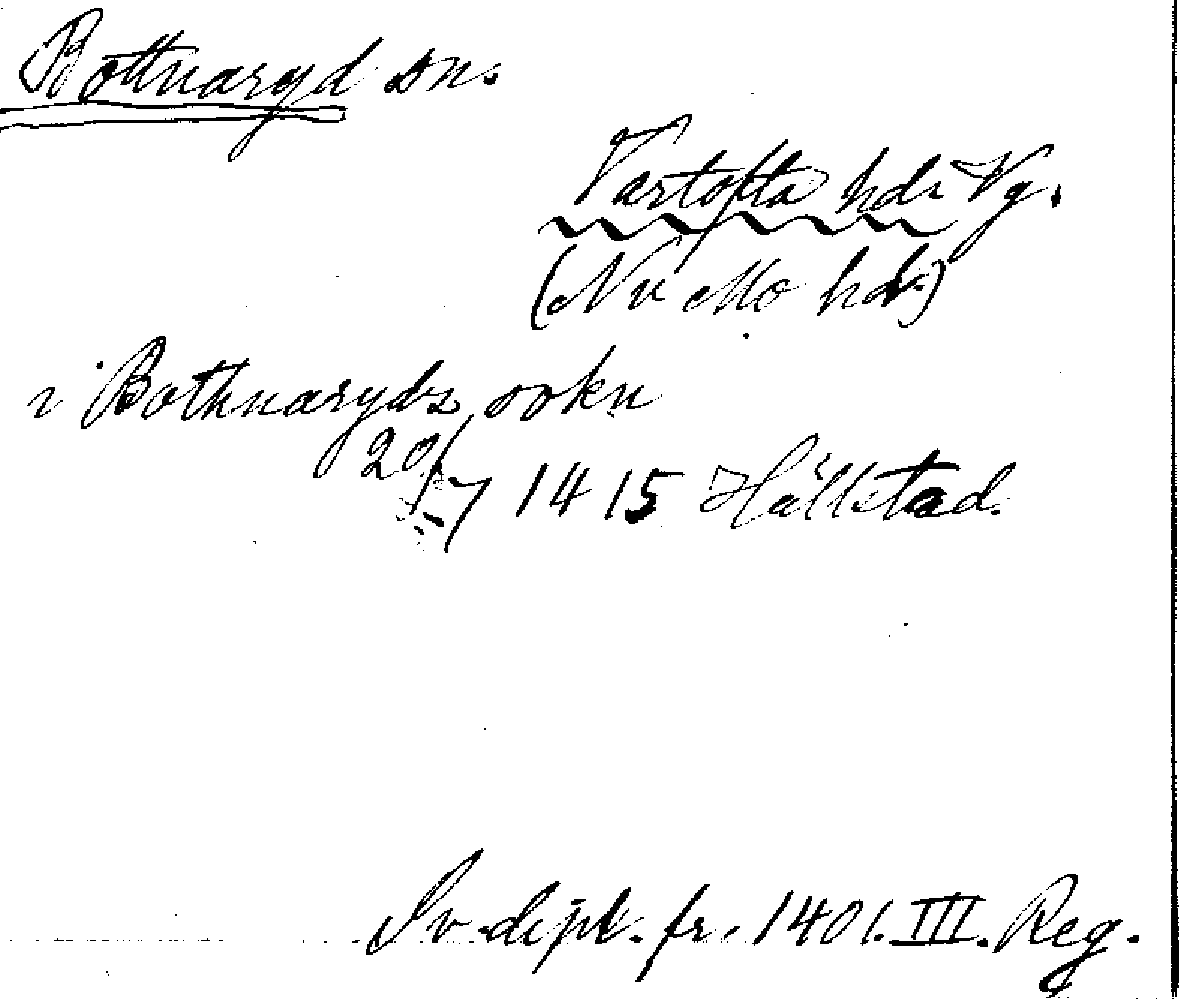 Bottnaryd sn.
Vartofta hd. Vg.
(Nu Mo hd.)
i Bothnaryds sokn
20/7 1415 Hällstad.
Sv. dipl. fr. 1401. III. Reg.